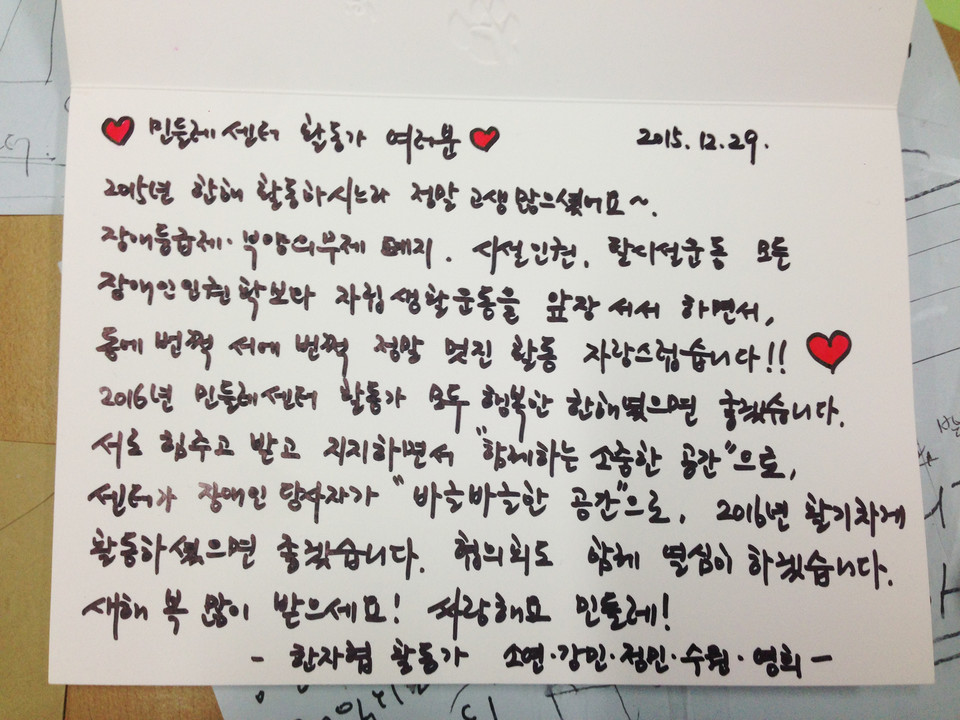 민들레센터 활동가 여러분 2015.12.29.
2015년 한해 활동하시느라 정말 고생많으셨어요~.
장애등급제·부양의무제 폐지. 시설인권, 탈시설운동 모든
장애인인권확보와 자립생활운동을 앞장서서 하면서,
동에번쩍 서에번쩍 정말 멋진 활동 자랑스럽습니다!!
2016년 민들레센터 활동가 모두 행복한 한해였으면 좋겠습니다.
서로 힘주고 받고 지지하면서 "함께하는 소중한 공간"으로,
센터가 장애인 당사자가 "바글바글한 공간"으로, 2016년 활기차게
활동하셨으면 좋겠습니다. 협의회도 함께 열심이 하겠습니다.
새해 복 많이 받으세요! 싸랑해요 민들레!
- 한자협 활동가 소연·강민·정민·수원·영희 -